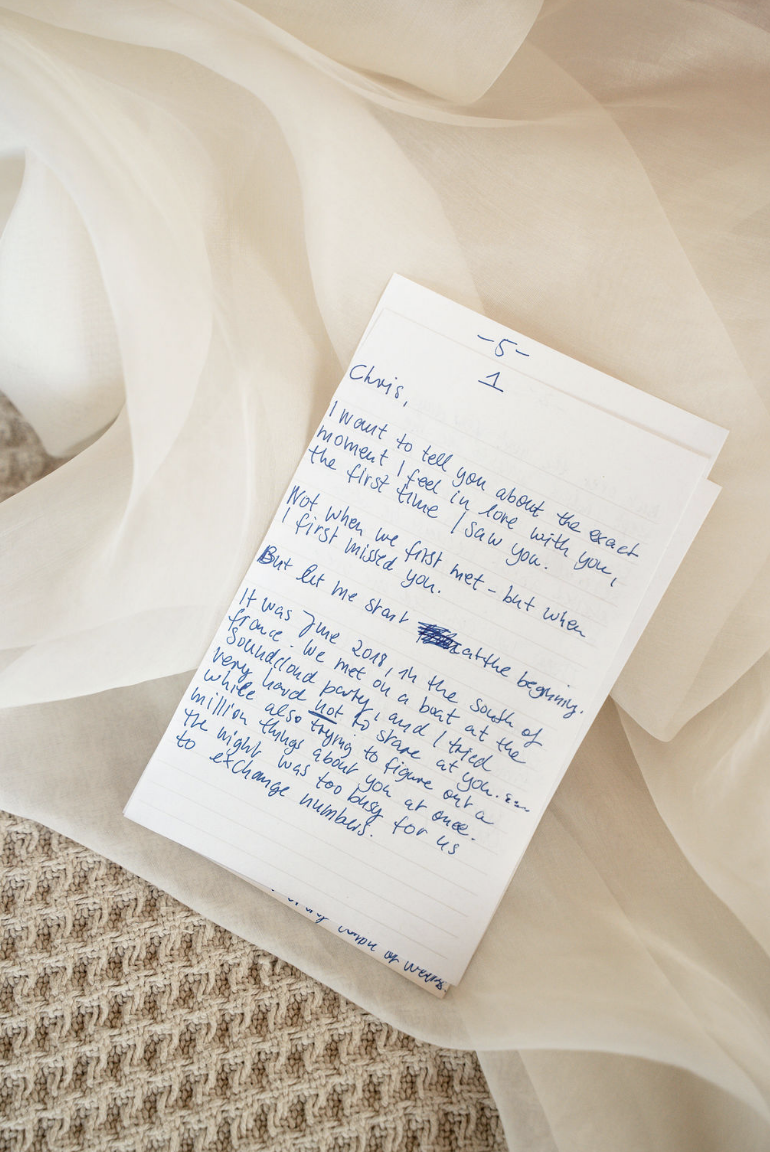 -5-
1
Chris,
I want to tell you about the exact
moment I feel in love with you,
the first time I saw you.
Not when we first met - but when
I first missed you.
But let me start at the beginning.
It was June 2018, in the south of
france. We met on a boat at the
Soundcloud party, and I tried
very hard not to stare at you...
while also trying to figure out a
million things about you at once.
The night was too busy for us
to exchange numbers.
of weeks